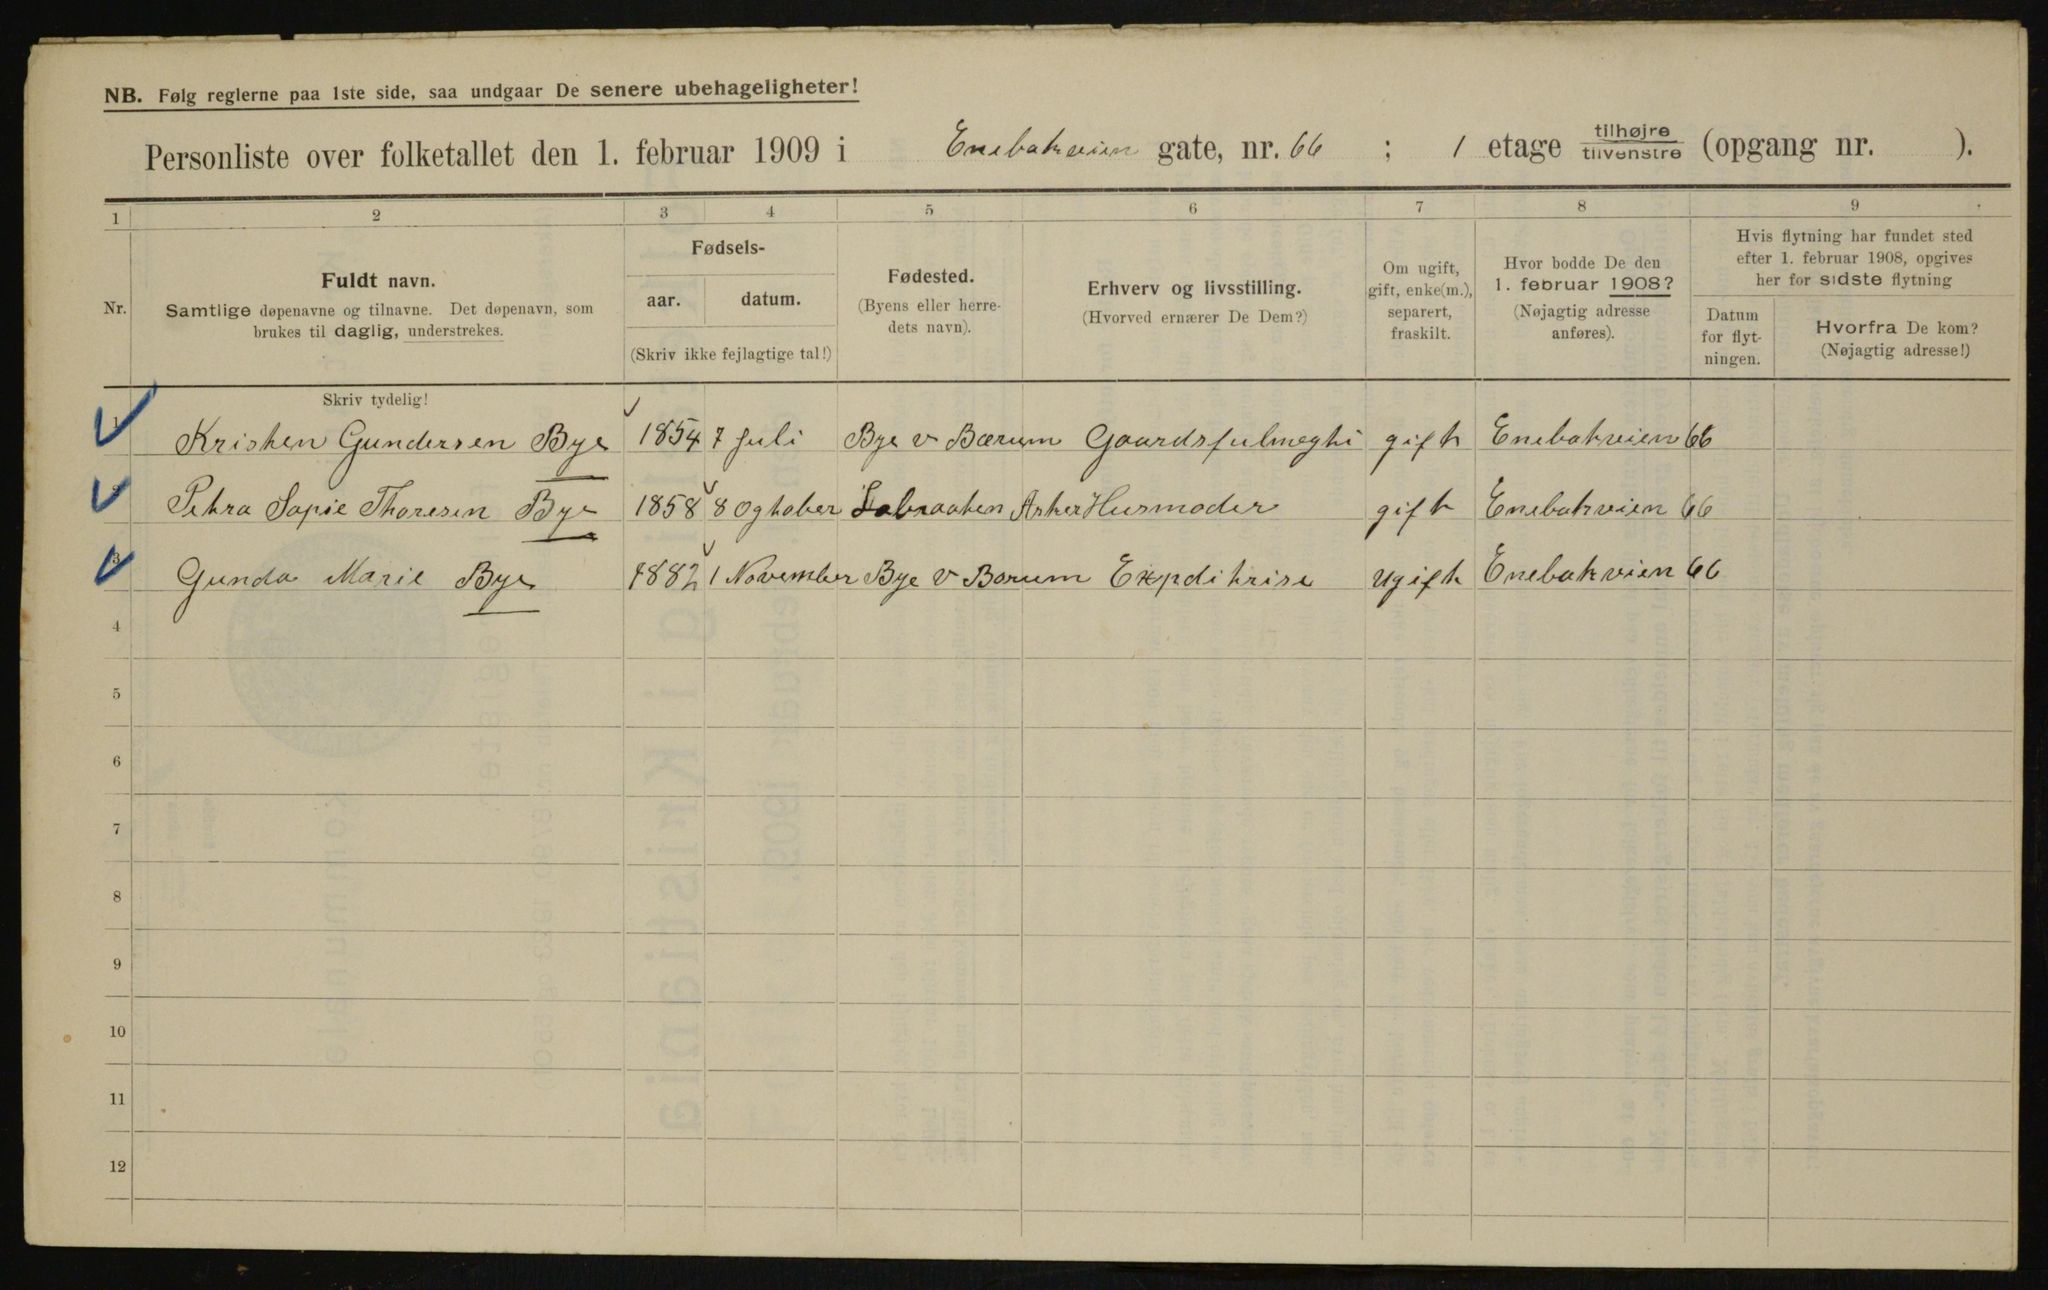 NB. Følg reglerne paa 1ste side, saa undgaar De senere ubehageligheter!
Personliste over folketallet den 1. februar 1909 i Enebakveien gate, nr. 66 ; 1 etage tilhøjre tilvenstre (opgang nr. ).
1 2 3 4 5 6 7 8 9
Nr.
Fuldt navn.
Samtlige døpenavne og tilnavne. Det døpenavn, som
brukes til daglig, understrekes.
Skriv tydelig!
Fødsels-
aar. datum.
(Skriv ikke fejlagtige tal!)
Fødested.
(Byens eller herre-
dets navn).
Erhverv og livsstilling.
(Hvorved ernærer De Dem?)
Om ugift,
gift, enke(m.),
separert,
fraskilt.
Hvor bodde De den
1. februar 1908?
(Nøjagtig adresse
anføres).
Hvis flytning har fundet sted
efter 1. februar 1908, opgives
her for sidste flytning
Datum
for flyt-
ningen.
Hvorfra De kom?
(Nøjagtig adresse!)
1 Kristen Gundersen Bye 1854 7 Juli Bye v Bærum Gaardsfulmegti gift Enebakveien 66
2 Petra Sopie Thoresen Bye 1858 8 Ogtober Asker Husmoder gift Enebakveien 66
3 Gunda Marie Bye 1882 1 November Bye v Barum Expditrise Ugift Enebakvien 66
4
5
6
7
8
9
10
11
12